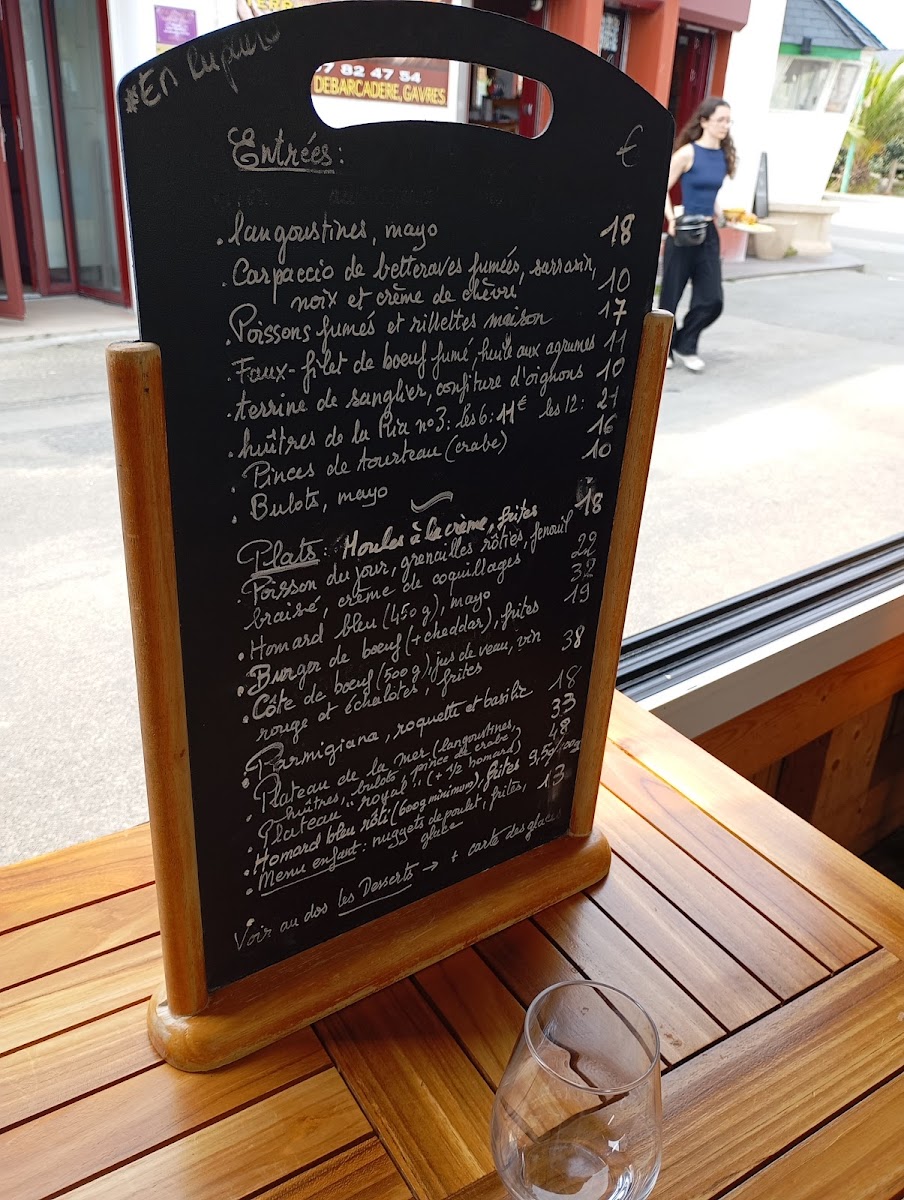 #En rupture
7 82 47 54
DEBARCADERE, GAVRES
Entrées: €
. langoustines, mayo 18
. Carpaccio de betteraves fumées, sarrasin,
noix et crème de chèvre 10
. Poissons fumés et rillettes maison 17
. Faux-filet de boeuf fumé, huile aux agrumes 11
. terrine de sanglier, confiture d'oignons 10
. huîtres de la Ria n°3: les 6: 11€ les 12: 21
. Pinces de tourteau (crabe) 16
. Bulots, mayo 10
Plats: Moules à la crème, frites 18
. Poisson du jour, grenailles rôties, fenouil
braisé, crème de coquillages 22
. Homard bleu (450 g), mayo 32
. Burger de boeuf (+cheddar), frites 19
. Côte de boeuf (500 g), jus de veau, vin
rouge et échalotes, frites 38
. Parmigiana, roquette et basilic 18
. Plateau de la mer (langoustines,
huîtres, bulots, pince de crabe) 33
. Plateau "royal" (+ 1/2 homard) 48
. Homard bleu rôti (600g minimum), frites 9,5€/100g
. Menu enfant: nuggets de poulet, frites, 13
glace
Voir au dos les Desserts → + carte des glaces